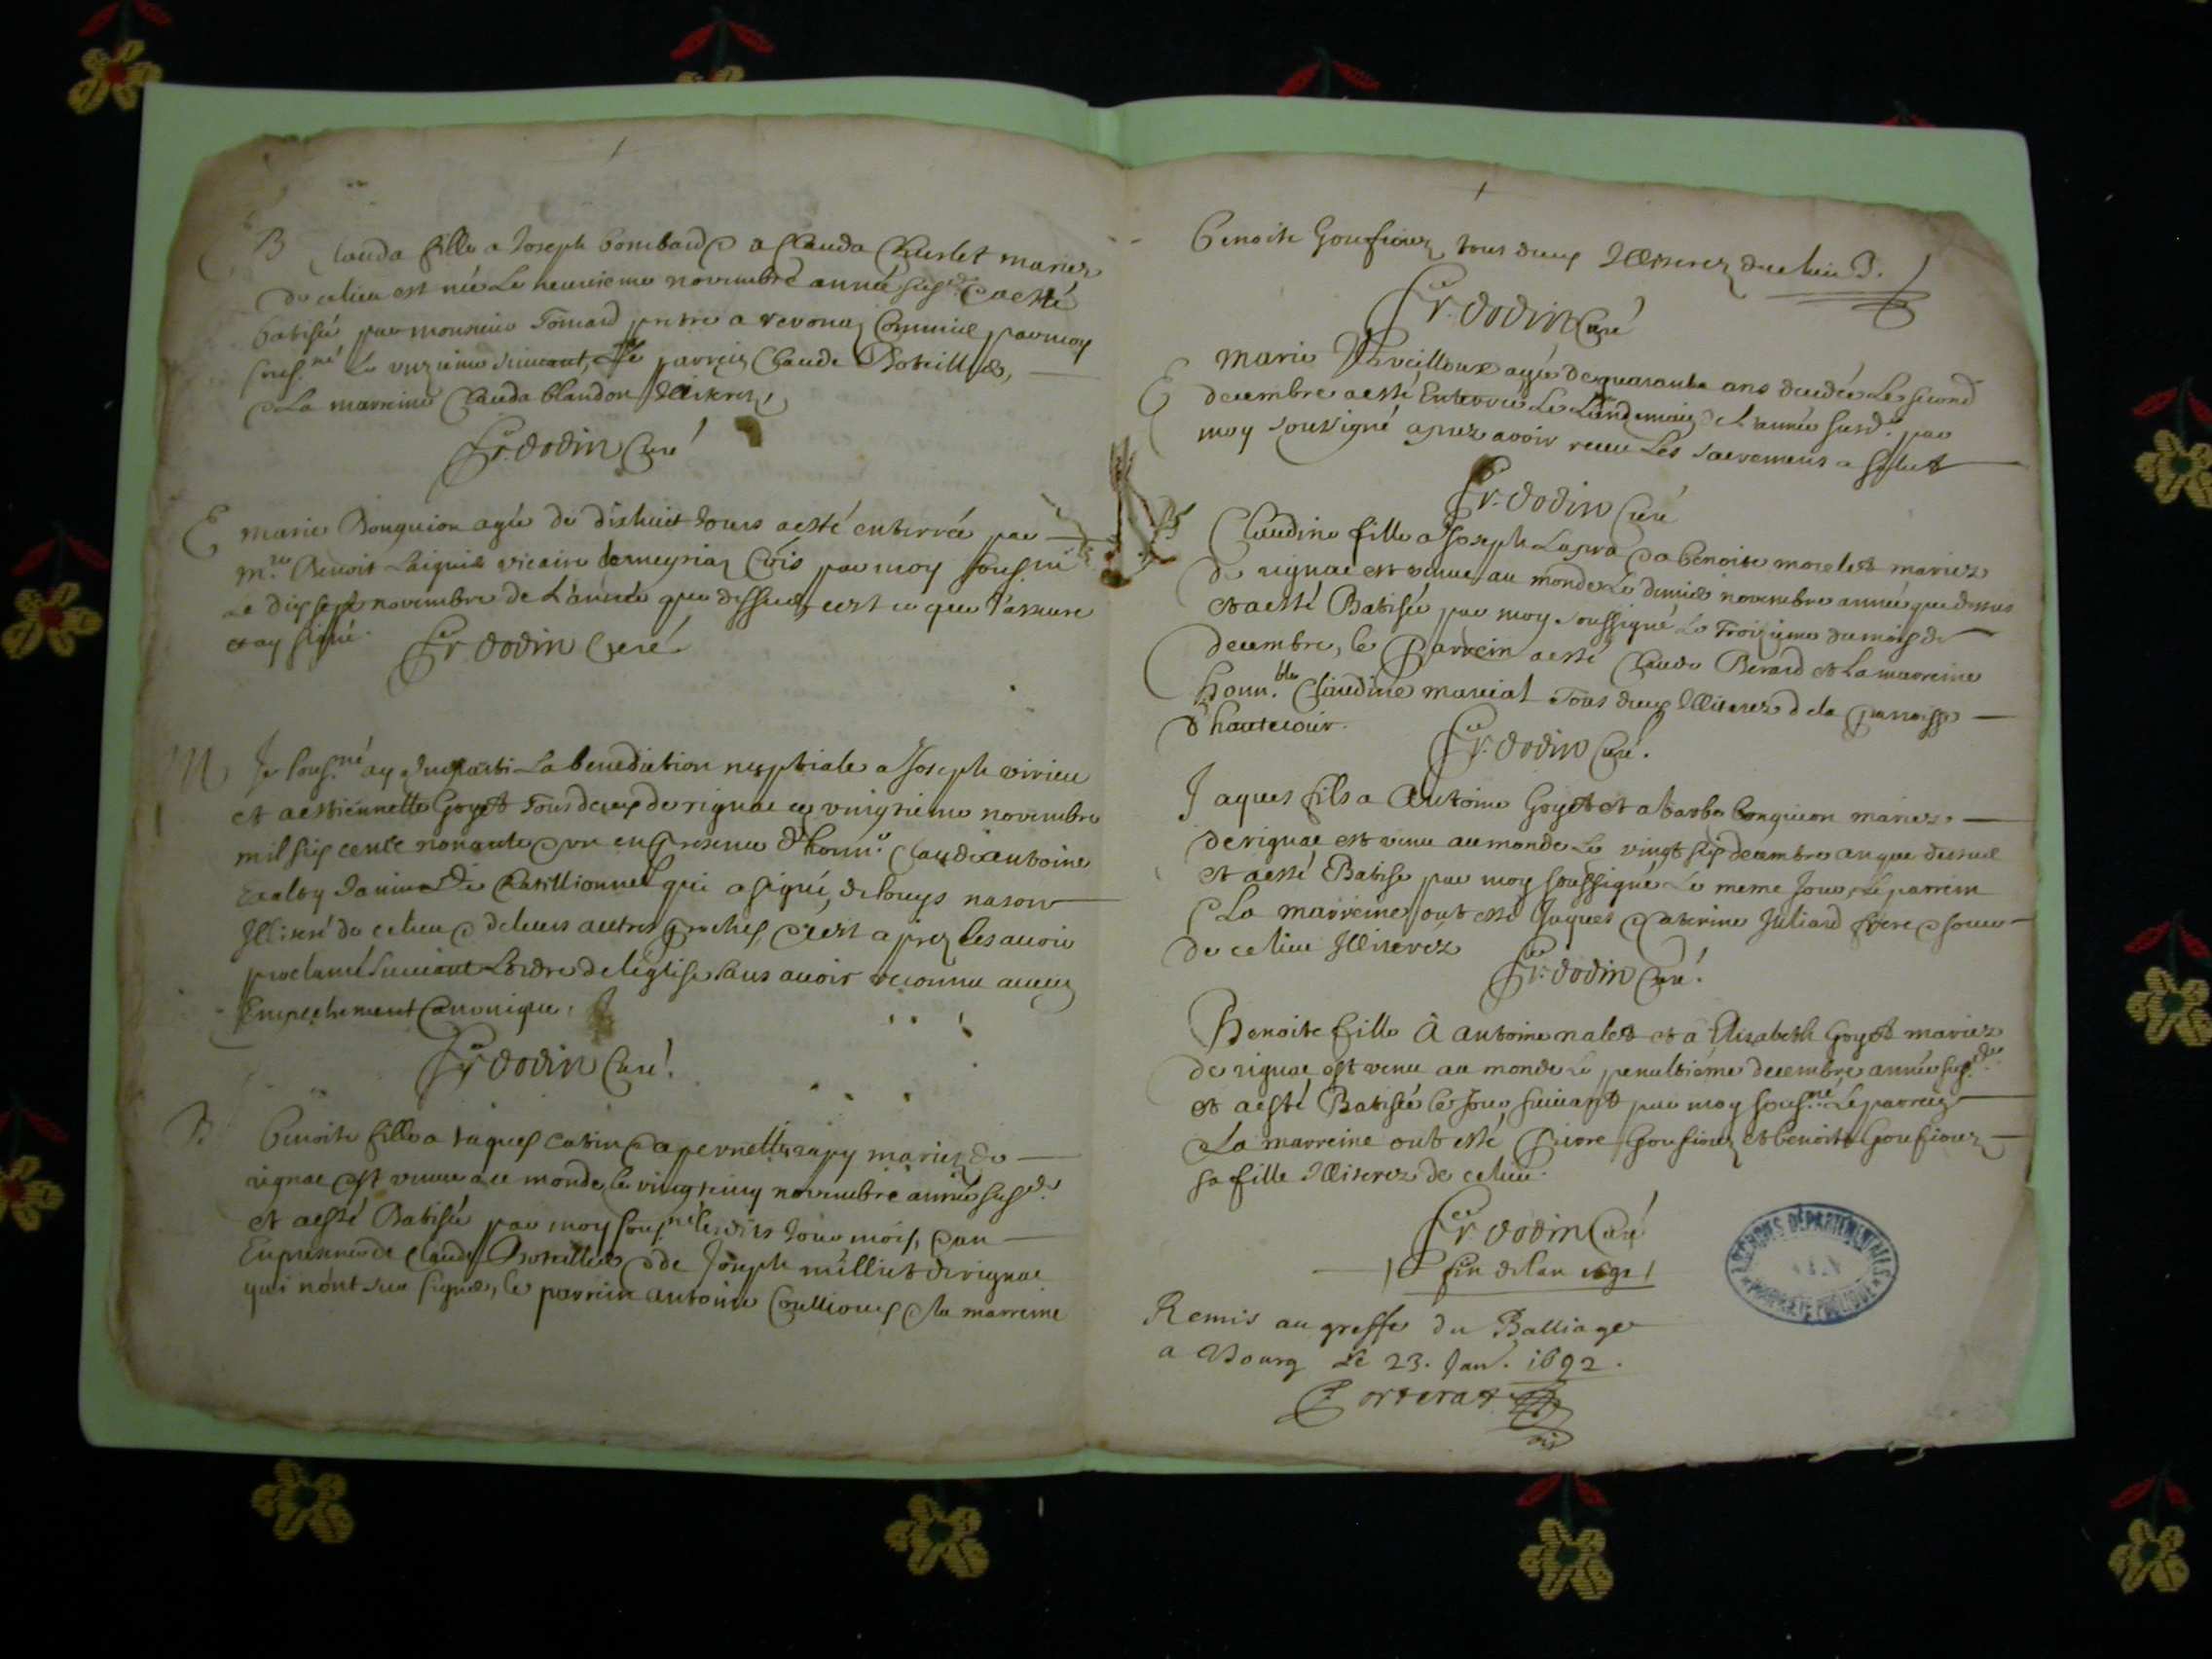 B Clauda fille a Joseph bombard & a Clauda Churlet mariez
de ce lieu est née Le neuvieme novembre année susd. & a esté
batisée par monsieur Tomard pretre a revonaz Commise par moy
sous.né Le unzieme suivant, Le parrein Claude Boteilles,
& La marreine Clauda blandon Illiterez,
Fr. Dodin Curé
E marie Bonguion agée de dixhuit Jours a esté enterrée par
m.re Benoit vicaire par moy sous.né
Le dix sept novembre de L'année que dessus, c'est ce que J'assure
et ay signé.
Fr Dodin Curé
M Je sous.né ay Imparti La benediction nuptiale a Joseph virieu
et a estiennette Goyet Tous deux de rignac ce vingtieme novembre
mil six cents nonante & un en presence d'honn.e Claudeantoine
de Chatillionnet qui a signé, de Louys nason
Illiteré de ce lieu & de leurs autres proches, c'est aprez les avoir
proclamé suivant L'ordre de l'eglise sans avoir reconnu aucun
Empechement Canonique.
Fr Dodin Curé.
B. Benoite fille a Jaques catin & a pernette rapy mariez de
rignac est venue au monde le vingt cinq novembre année susd.e
et a esté Batisée par moy sous.né lesdits Jour mois, & an
En presence de Claude Boteilles & de Joseph milliet de rignac
qui n'ont sceu signer, le parrein antoine Coullioux & la marreine
Benoite Goufiouz tous deux Illiterez dudit lieu J.
Fr. Dodin Curé
E marie agée de quarante ans decedée Le second
decembre a esté Enterrée Le Lendemain de L'année susd.e par
moy soussigné aprez avoir receu Les sacremens a salut
Fr. Dodin Curé
B Claudine fille a Joseph Lapra & a benoite morelet mariez
de rignac est venue au monde Le dernier novembre année que dessus
et a esté Batisée par moy soussigné Le Troizieme du mois de
decembre, le Parrein a esté Claude Berard et La marreine
honn.ble Claudine marciat Tous deux Illiterez de la paroisse
d'hautecour.
Fr. Dodin Curé.
Jaques fils a Antoine Goyet et a barbe bonguion mariez
de rignac est venu au monde Le vingt six decembre an que dessus
et a esté Batisé par moy soussigné Le meme Jour, Le parrein
& La marreine ont esté Jaques & Caterine Juliard frere & soeur
de ce lieu Illiterez
Fr. Dodin Curé.
Benoite fille à antoine nalet et à Elisabeth Goyet mariez
de rignac est venu au monde Le penultiéme decembre année susd.e
et a esté Batisée le Jour suivant par moy sous.né Le parrein
& La marreine ont esté Pierre Goufiouz et benoite Goufiouz
sa fille Illiterez de ce lieu.
Fr. Dodin Curé
fin de l'an 1691
Remis au greffe du Balliage
a Bourg Le 23. Janv. 1692.
Corterat
ARCHIVES DÉPARTEMENTALES
AIN
PROPRIÉTÉ PUBLIQUE